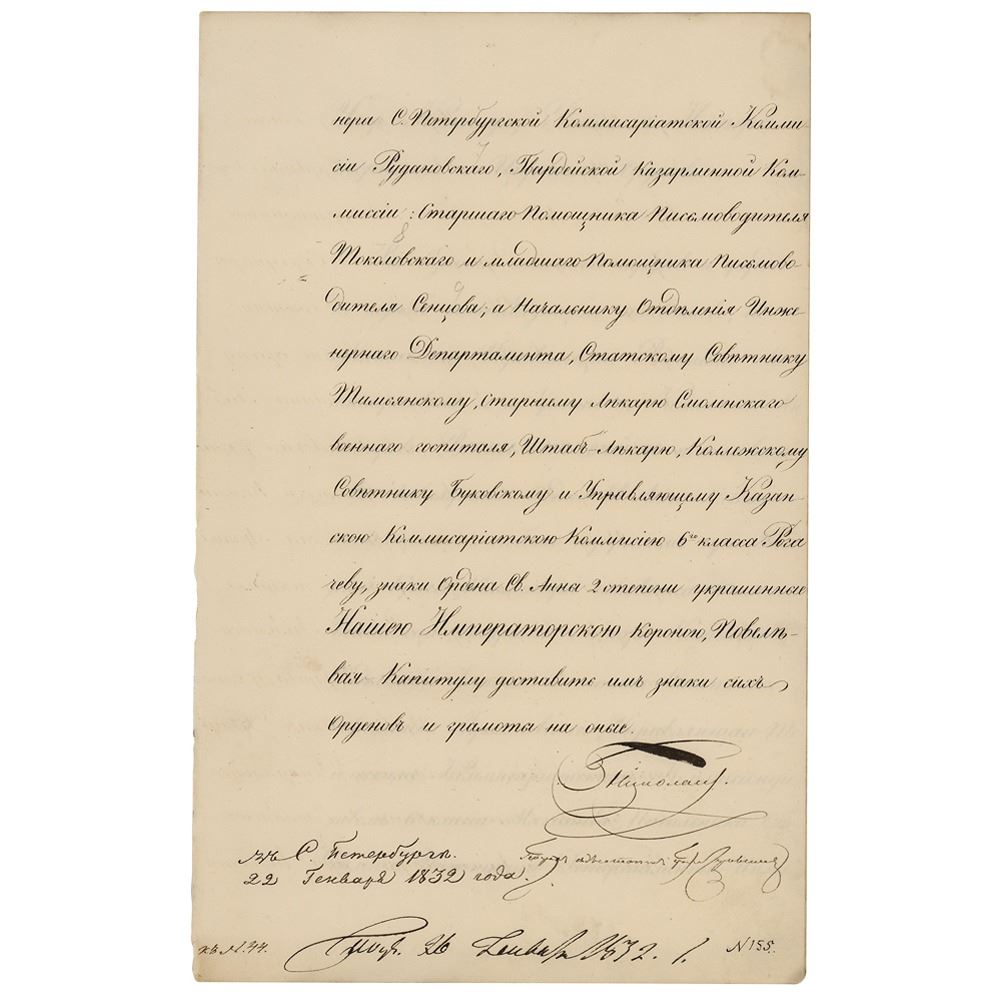 нери С. Петербургской Коммисаріатской Комми-
сіи Рудановскаго, Гвардейской Казарменной Ком-
миссіи: Старшаго Помощника Письмоводителя
Соколовскаго и младшаго Помощника Письмово-
дителя Сенцова; а Начальнику Отдѣленія Инже-
нернаго Департамента, Статскому Совѣтнику
старшему Лѣкарю Смоленскаго
военнаго госпиталя, Штабъ-Лѣкарю, Коллежскому
Совѣтнику Буковскому и Управляющему Казан-
скою Коммисаріатскою Коммисіею 6го класса Рога
чеву, знаки Ордена Св. Анны 2 степени украшенные
Нашею Императорскою Короною, Повелѣ-
вая Капитулу доставить имъ знаки сихъ
Орденовъ и грамоты на оные.
Николай
Въ С. Петербургѣ.
22 Генваря 1832 года.
къ N. 44.
26 Генваря 1832. г.
N 155.